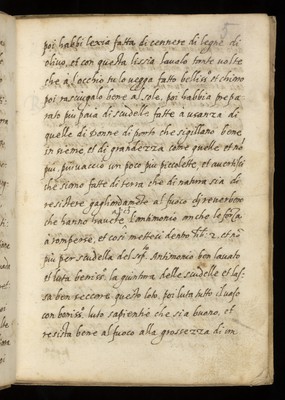 poi habbi lexia fatta di cennere di legne di
olivo, et con questa lissia lavalo tante volte
che à l'occhio tu lo vegga fatto belliss.o et chiaro
poi rasciugalo bene al sole, poi habbia prepa
rato più paia di scudelle fatte à usanza di
quelle di Donne di parto che sigillano bene
insieme et di grandezza come quelle et nò
più, più avaccio un poco più piccolette, et avertisci
che siano fatte di terra che di natura sia di
resistere gagliardamente al fuoco di reverbero
che hanno havere l'antimonio anche la forza
à romperle, et così metteci dentro lib: 2. et nò
più per scudella del s.to Antimonio ben lavato
et luta beniss.o la giuntura delle scudelle et las-
sa ben seccare questo loto, poi luta tutto il vaso
con boniss.o luto sapientie che sia buono, et
resista bene al fuoco alla grossezza di un